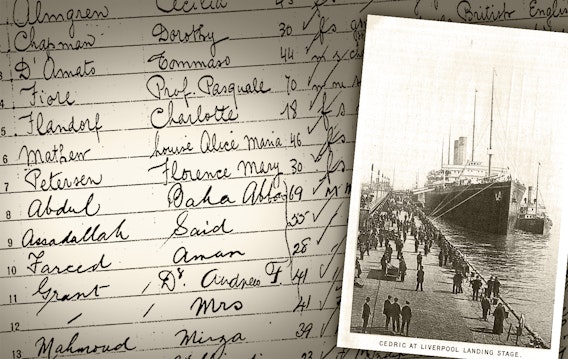 Almgren Cecilia
Chapman Dorothy 30 f s British English
3 D'Amato Tommaso 44 m
4 Fiore Prof. Pasquale 70 m m
5 Flandorf Charlotte 18 f s
6 Mathew Louise Alice Maria 46 f s
7 Petersen Florence Mary 30 f s
8 Abdul Baha Abbas 69 M
9 Assadallah Said 55
10 Fareed Aman 28
11 Grant Dr Andrew F 41
12 " " Mrs 41
13 Mahmoud Mirza 39
CEDRIC AT LIVERPOOL LANDING STAGE.